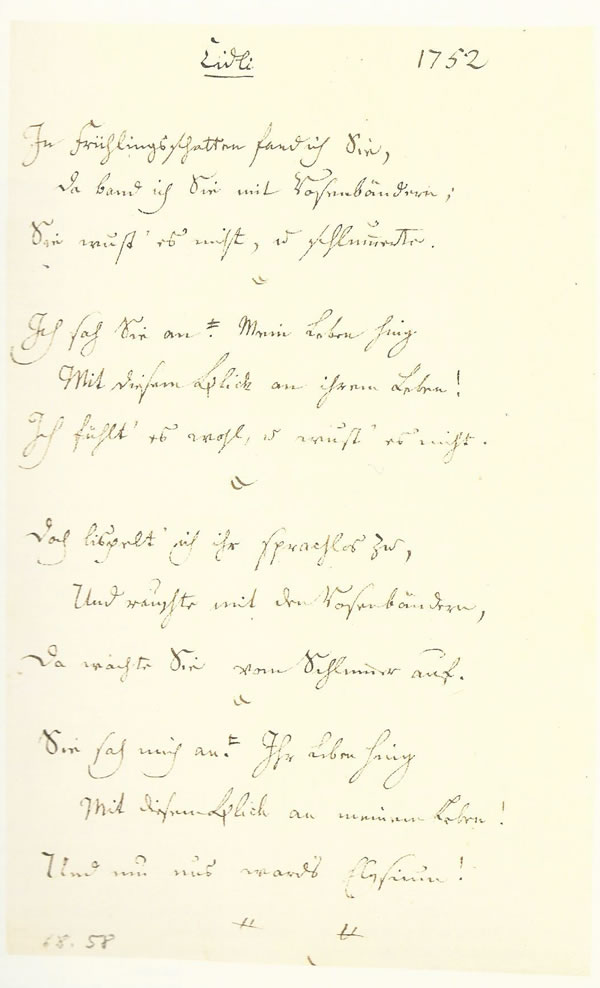 Cidli 1752
In Frühlingsschatten fand ich Sie,
da band ich Sie mit Rosenbändern;
Sie wust' es nicht, u schlum̅erte.
Ich sah Sie an: Mein Leben hing
Mit diesem Blick an ihrem Leben!
Ich fühlt' es wohl, u wust' es nicht.
Doch lispelt' ich ihr sprachlos zu,
Und rauschte mit den Rosenbändern,
Da wachte Sie vom Schlum̅er auf.
Sie sah mich an: Ihr Leben hing
Mit diesem Blick an meinem Leben!
Und um uns wards Elysium!
68. 58